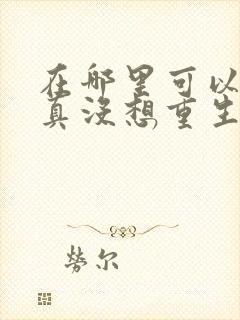 在哪里可以
真没想重生
劳尔